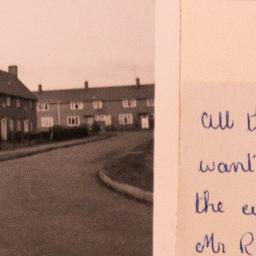 all
want
the
Mr R